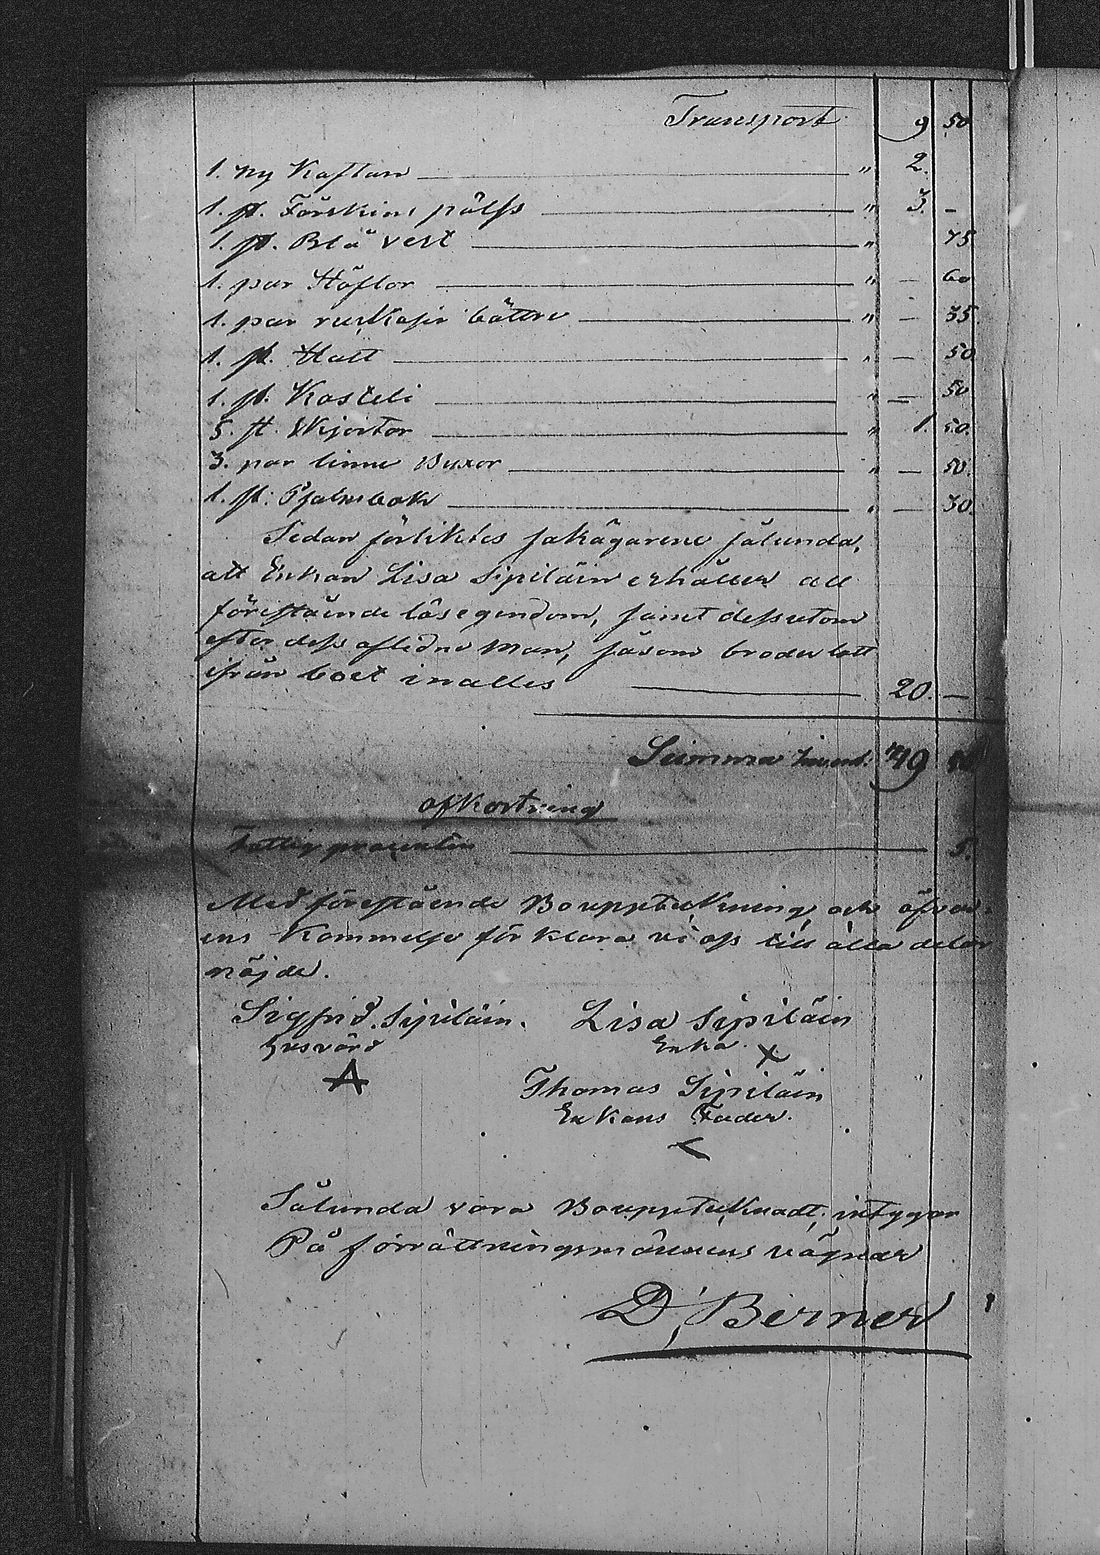 Transport 9 50
1. ny Kaftan " 2. –
1. st. Fårskins pälss " 3. –
1. st. Blå vest " 75
1. par Stöflor " – 60
1. par bättre " – 35
1. st. Hatt " – 50
1. st. Kasteli " – 50
5. st. Skjortor " 1. 50.
3. par linne Buxor " – 50.
1. st. Psalmbok " – 30.
Sedan förliktes sakägarene sålunda,
att Enkan Lisa Sipiläin erhåller all
förestående lösegendom, samt dessutom
efter dess aflidne man, såsom broder lott
ifrån boet inalles 20. –
Summa Invent. 49
afkortning
Fattig procenten 5.
Med förestående Bouppteckning och
ens kommelse förklara vi oss till alla delar
nöjde.
Sigfrid. Sipiläin. Lisa Sipiläin
Husvärd Enka X
A Thomas Sipiläin
Enkans Fader.
<
Sålunda vara Bouppteknadt, intygar
På förrättningsmännens vägnar
D, Berner